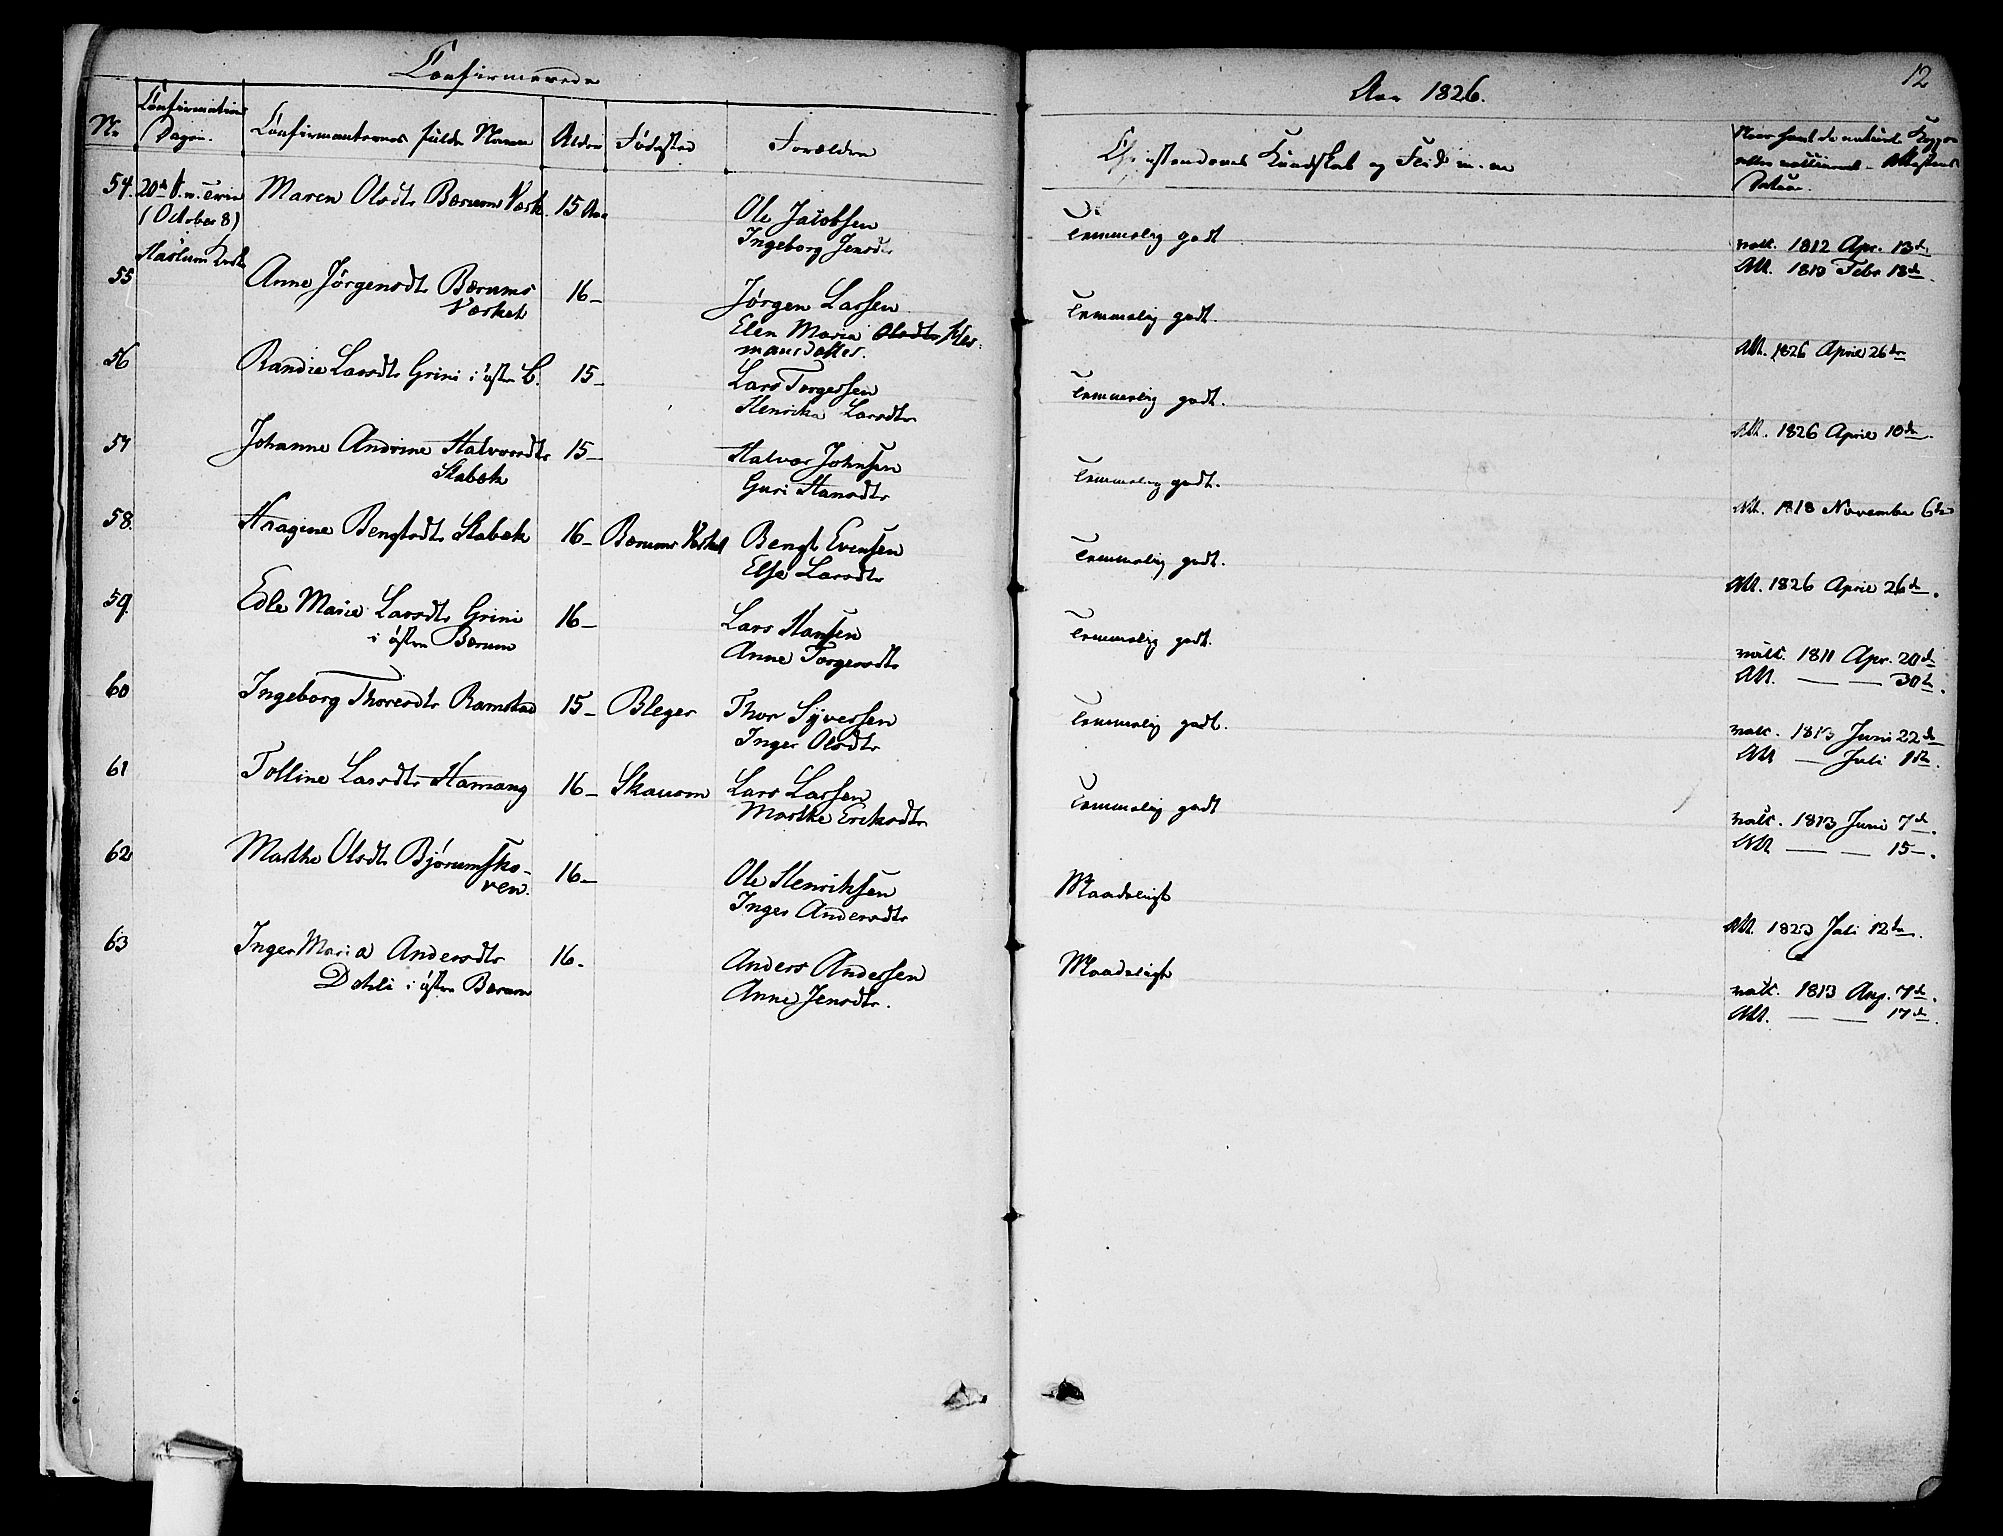 Confirmerede
Aar 1826.
12
No
Confirmations Dagen.
Confirmanternes fulde Navne
Alder
Fødested
Forældre
Christendoms Kundskab og Flid m. m
Naar samt de naturl. Kopper
eller vaccineret – Attestens
Datum.
54. 20de S. n. Trin Maren Olsdtr Bærums Værk 15 Aar
(October 8)
Haslum Kirke
Ole Jacobsen
Ingeborg Jensdtr
Temmelig godt
vacc. 1812 Apr. 13de
Att. 1819 Febr 18de
55 Anne Jørgensdtr Bærums
Værket
16 –
Jørgen Larsen
Elen Maria Olsdtr Her
mansdatter.
Temmelig godt.
Att. 1826 April 26de
56 Randie Larsdtr Grini i østre B. 15 –
Lars Torgersen
Henrika Larsdtr
Temmelig godt.
Att. 1826 April 10de.
57 Johanne Andrine Halvorsdtr
Stabæk
15 –
Halvor Johnsen
Guri Hansdtr
Temmelig godt.
Att. 1818 November 6te
58. Aragine Bengtsdtr Stabæk 16 – Bærums Værket
Bengt Evensen
Else Larsdtr
Temmelig godt.
Att. 1826 April 26de.
59. Edle Marie Larsdtr Grini
i østre Bærum
16 –
Lars Hansen
Anne Torgersdtr
Temmelig godt.
vacc. 1811 Apr. 20de
Att. — — 30te.
60 Ingeborg Thoresdtr Ramstad 15 – Bleger
Thor Syversen
Inger Olsdtr
Temmelig godt.
vacc. 1813 Juni 22de
Att — Juli 1ste.
61 Tolline Larsdtr Hamang 16 – Skausm
Lars Larsen
Marthe Ericksdtr
Temmelig godt
vacc. 1813 Juni 7de.
Att — — 15 –.
62 Marthe Olsdtr Bjørumsko-
ven.
16 –
Ole Henriksen
Inger Andersdtr
Maadeligt
Att. 1823 Juli 12te.
63 Inger Maria Andersdtr
Dæhli i østre Bærum
16 –
Anders Andersen
Anne Jensdtr.
Maadeligt
vacc. 1813 Aug. 7de.
Att. — — 17de.